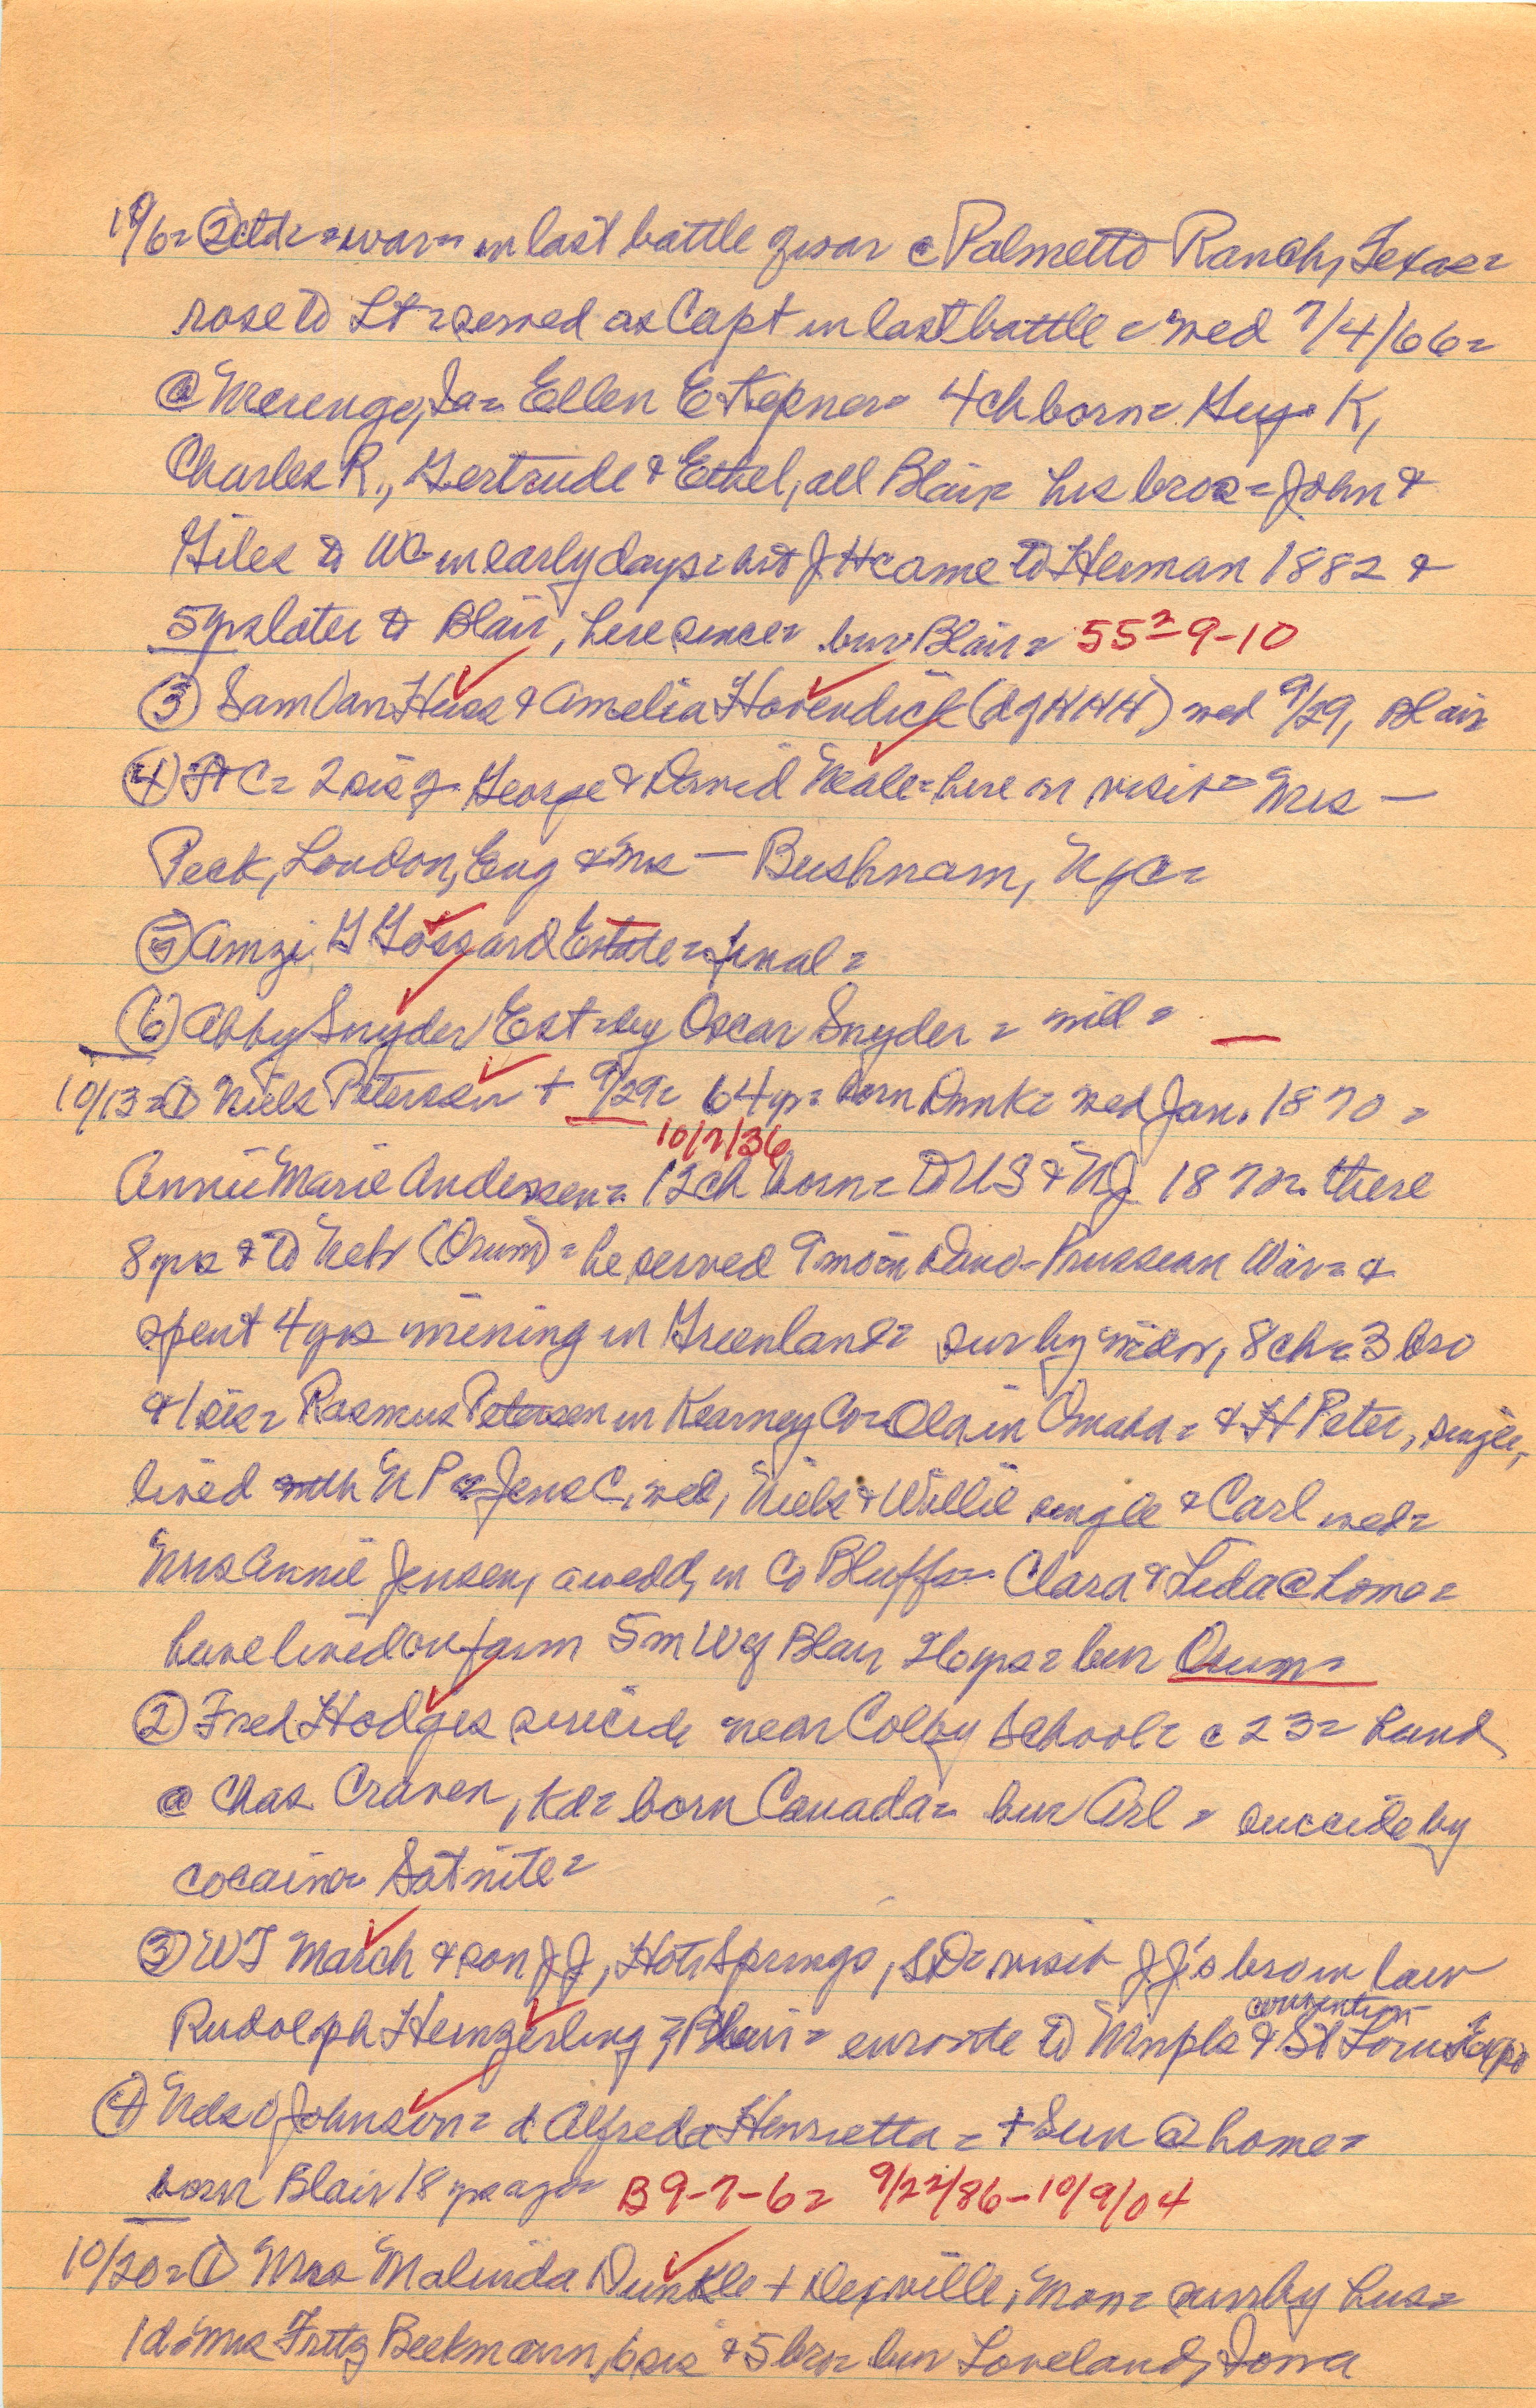 10/6= ② ctd= war= in last battle of war c Palmetto Ranch, Texas=
rose to Lt = served as Capt in last battle = wed 7/4/66=
@ Marengo, Ia= Ellen E Kepner= 4 ch born= Guy K,
Charles R., Gertrude & Ethel, all Blair= his bros= John &
Giles to WC in early days= but J H came to Herman 1882 &
5 yrs later to Blair, here since= bur Blair= 55²-9-10
③ Sam Van Huss & Amelia Hovendick (d of H H H) wed 9/29, Blair
④ FtC= 2 sis of George & David Neale= here on visit= Mrs —
Peck, London, Eng & Mrs — Bushnam, NYC=
⑤ Amzi G Gossard Estate= final=
⑥ Abby Snyder Est= by Oscar Snyder= will=
10/13= ① Niels Petersen + 9/29= 64 yr= born Dnmk= wed Jan. 1870=
10/2/36
Annie Marie Andersen= 12 ch born= to US & NJ 1870= there
8 yrs & to Neb (Orum)= he served 9 mo in Dano-Prussian War= &
spent 4 yrs mining in Greenland= sur by widow, 8 ch= 3 bro
& 1 sis= Rasmus Petersen in Kearney Co= Ola in Omaha= & H Peter, single,
lived with N P= Jens C, wed, Niels & Willie single & Carl wed=
Mrs Annie Jensen, a wedd, in Co Bluffs= Clara & Leda @ home=
have lived on farm 5 m W of Blair 26 yrs= bur Orum=
② Fred Hodges suicide near Colby School= c 23= hand
@ Chas Craven, Kd= born Canada= bur Arl= suicide by
cocaine Sat nite=
③ W T March & son J J, Hot Springs, SD= visit J J's bro in law
Rudolph Hengerling of Blair= enroute to Mnpls convention & St Louis Expo
④ Nels O Johnson= d Alfreda Henrietta= + Sun @ home=
born Blair 18 yrs ago= B 9-7-6= 9/22/86-10/9/04
10/20= ① Mrs Malinda Dunkle + Dexville, Mon= surv by hus=
1 d= Mrs Fritz Beekmann, 6 sis & 5 bro= bur Loveland, Iowa